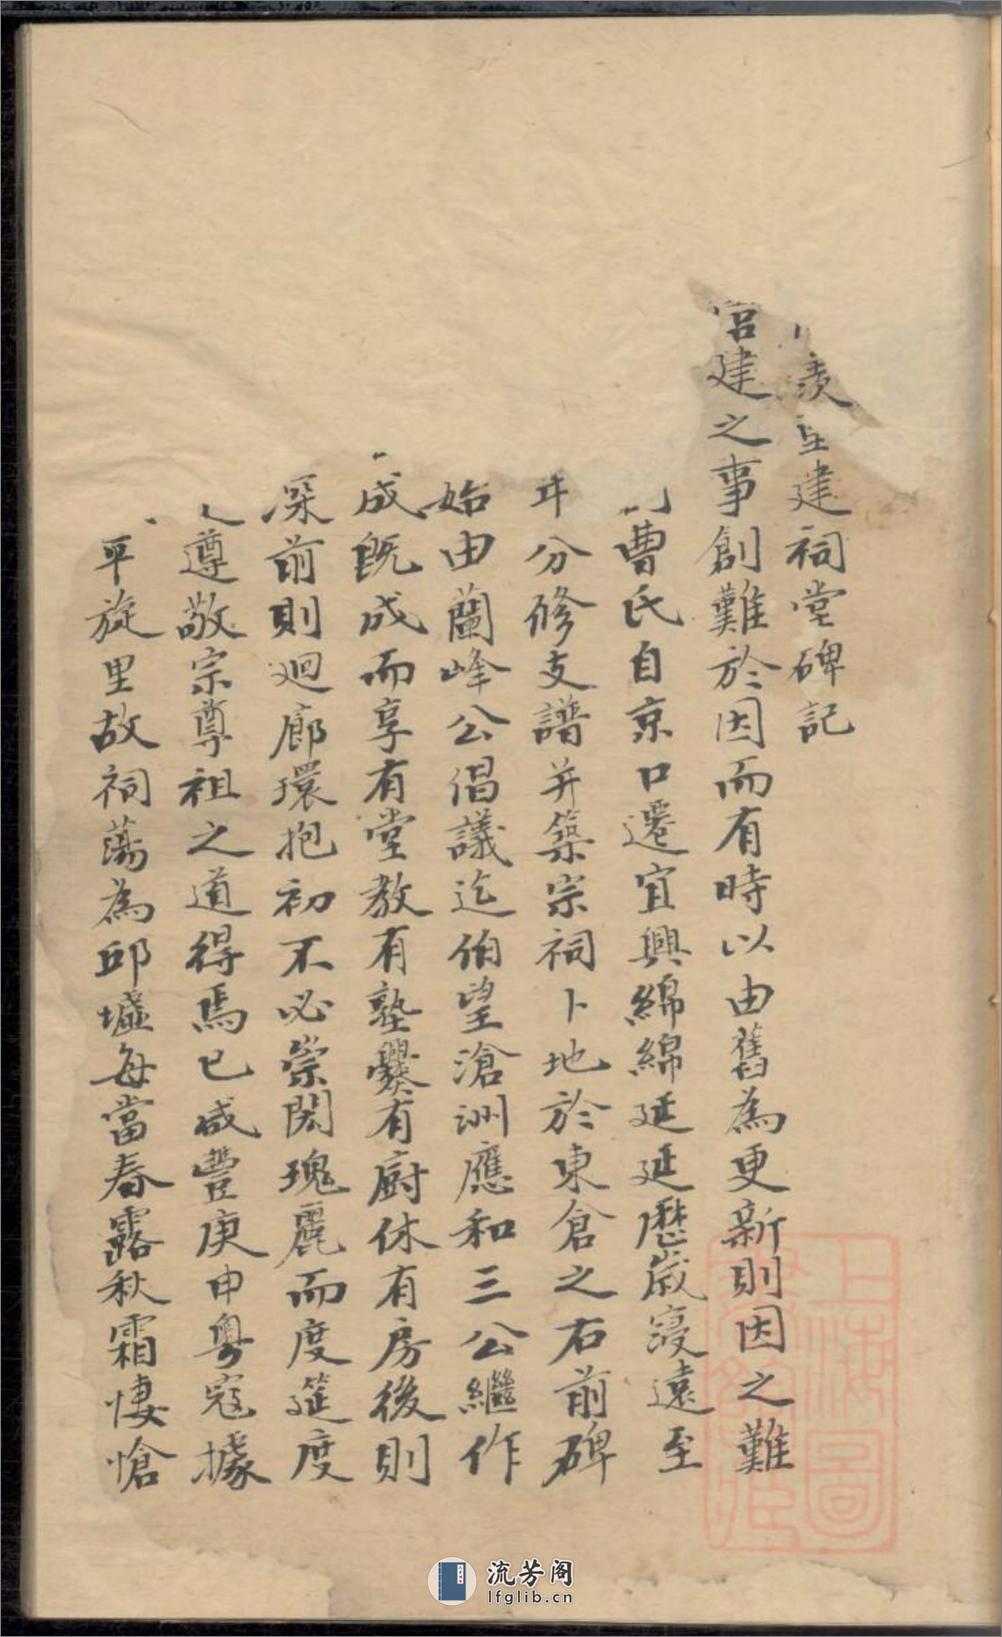 羨重建祠堂碑記
建之事創難於因而有時以由舊為更新則因之難
曹氏自京口遷宜興綿綿延延歷歲寖遠至
年分修支譜并築宗祠卜地於東倉之右前碑
始由蘭峰公倡議迄伯望滄洲應和三公繼作
成既成而享有堂教有塾爨有廚休有房後則
深前則迴廊環抱初不必崇閎瑰麗而度筵度
遵敬宗尊祖之道得焉已咸豐庚申粵寇據
平旋里故祠蕩為邱墟每當春露秋霜悽愴
上海圖書館藏
流芳阁
lfglib.cn